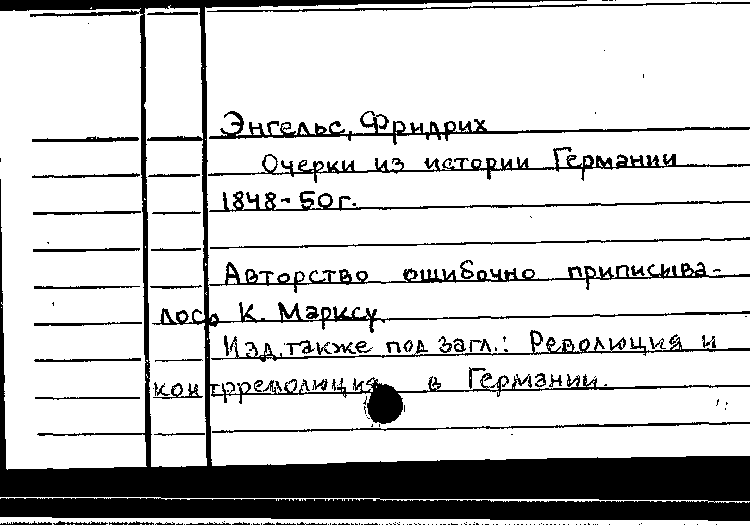 Энгельс, Фридрих
Очерки из истории Германии
1848-50г.
Авторство ошибочно приписыва-
лось К. Марксу
Изд. также под загл.: Революция и
контрреволюция в Германии.